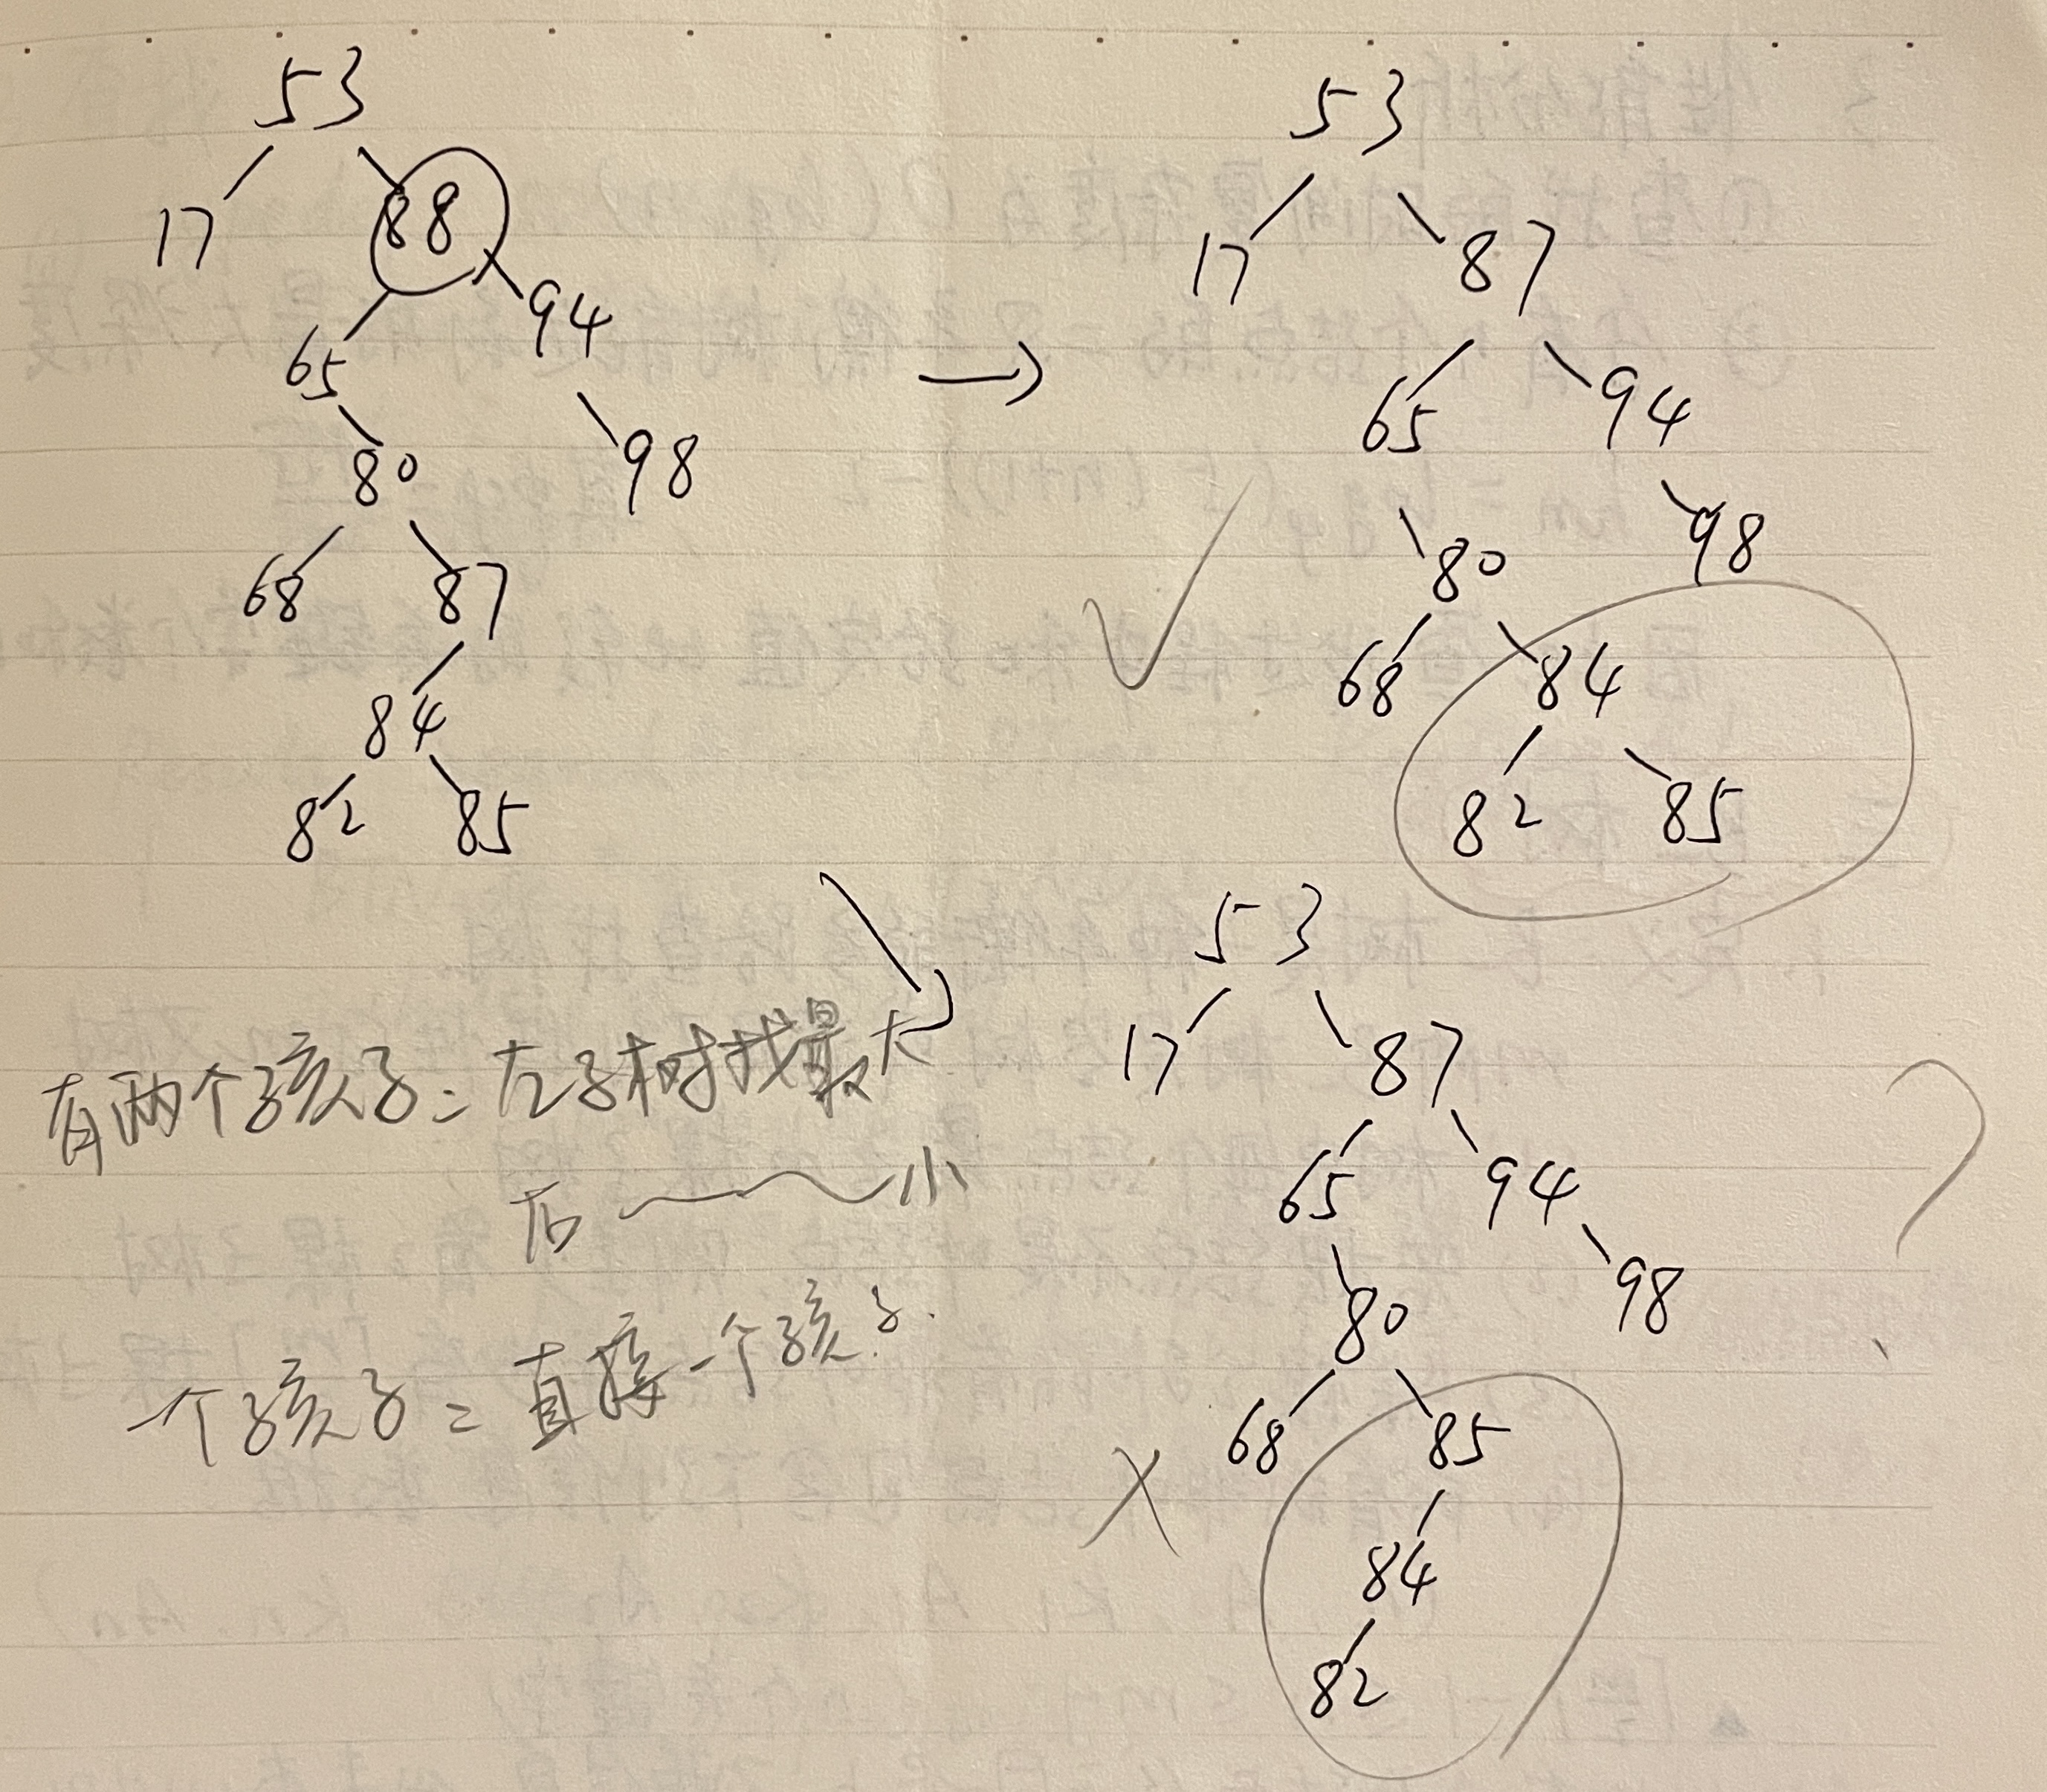 53
17 88
65 94
80 98
68 87
84
82 85
53
17 87
65 94
80 98
68 84
82 85
有两个孩子：左子树找最大
右 小
一个孩子：直接一个孩子.
53
17 87
65 94
80 98
68 85
84
82
?